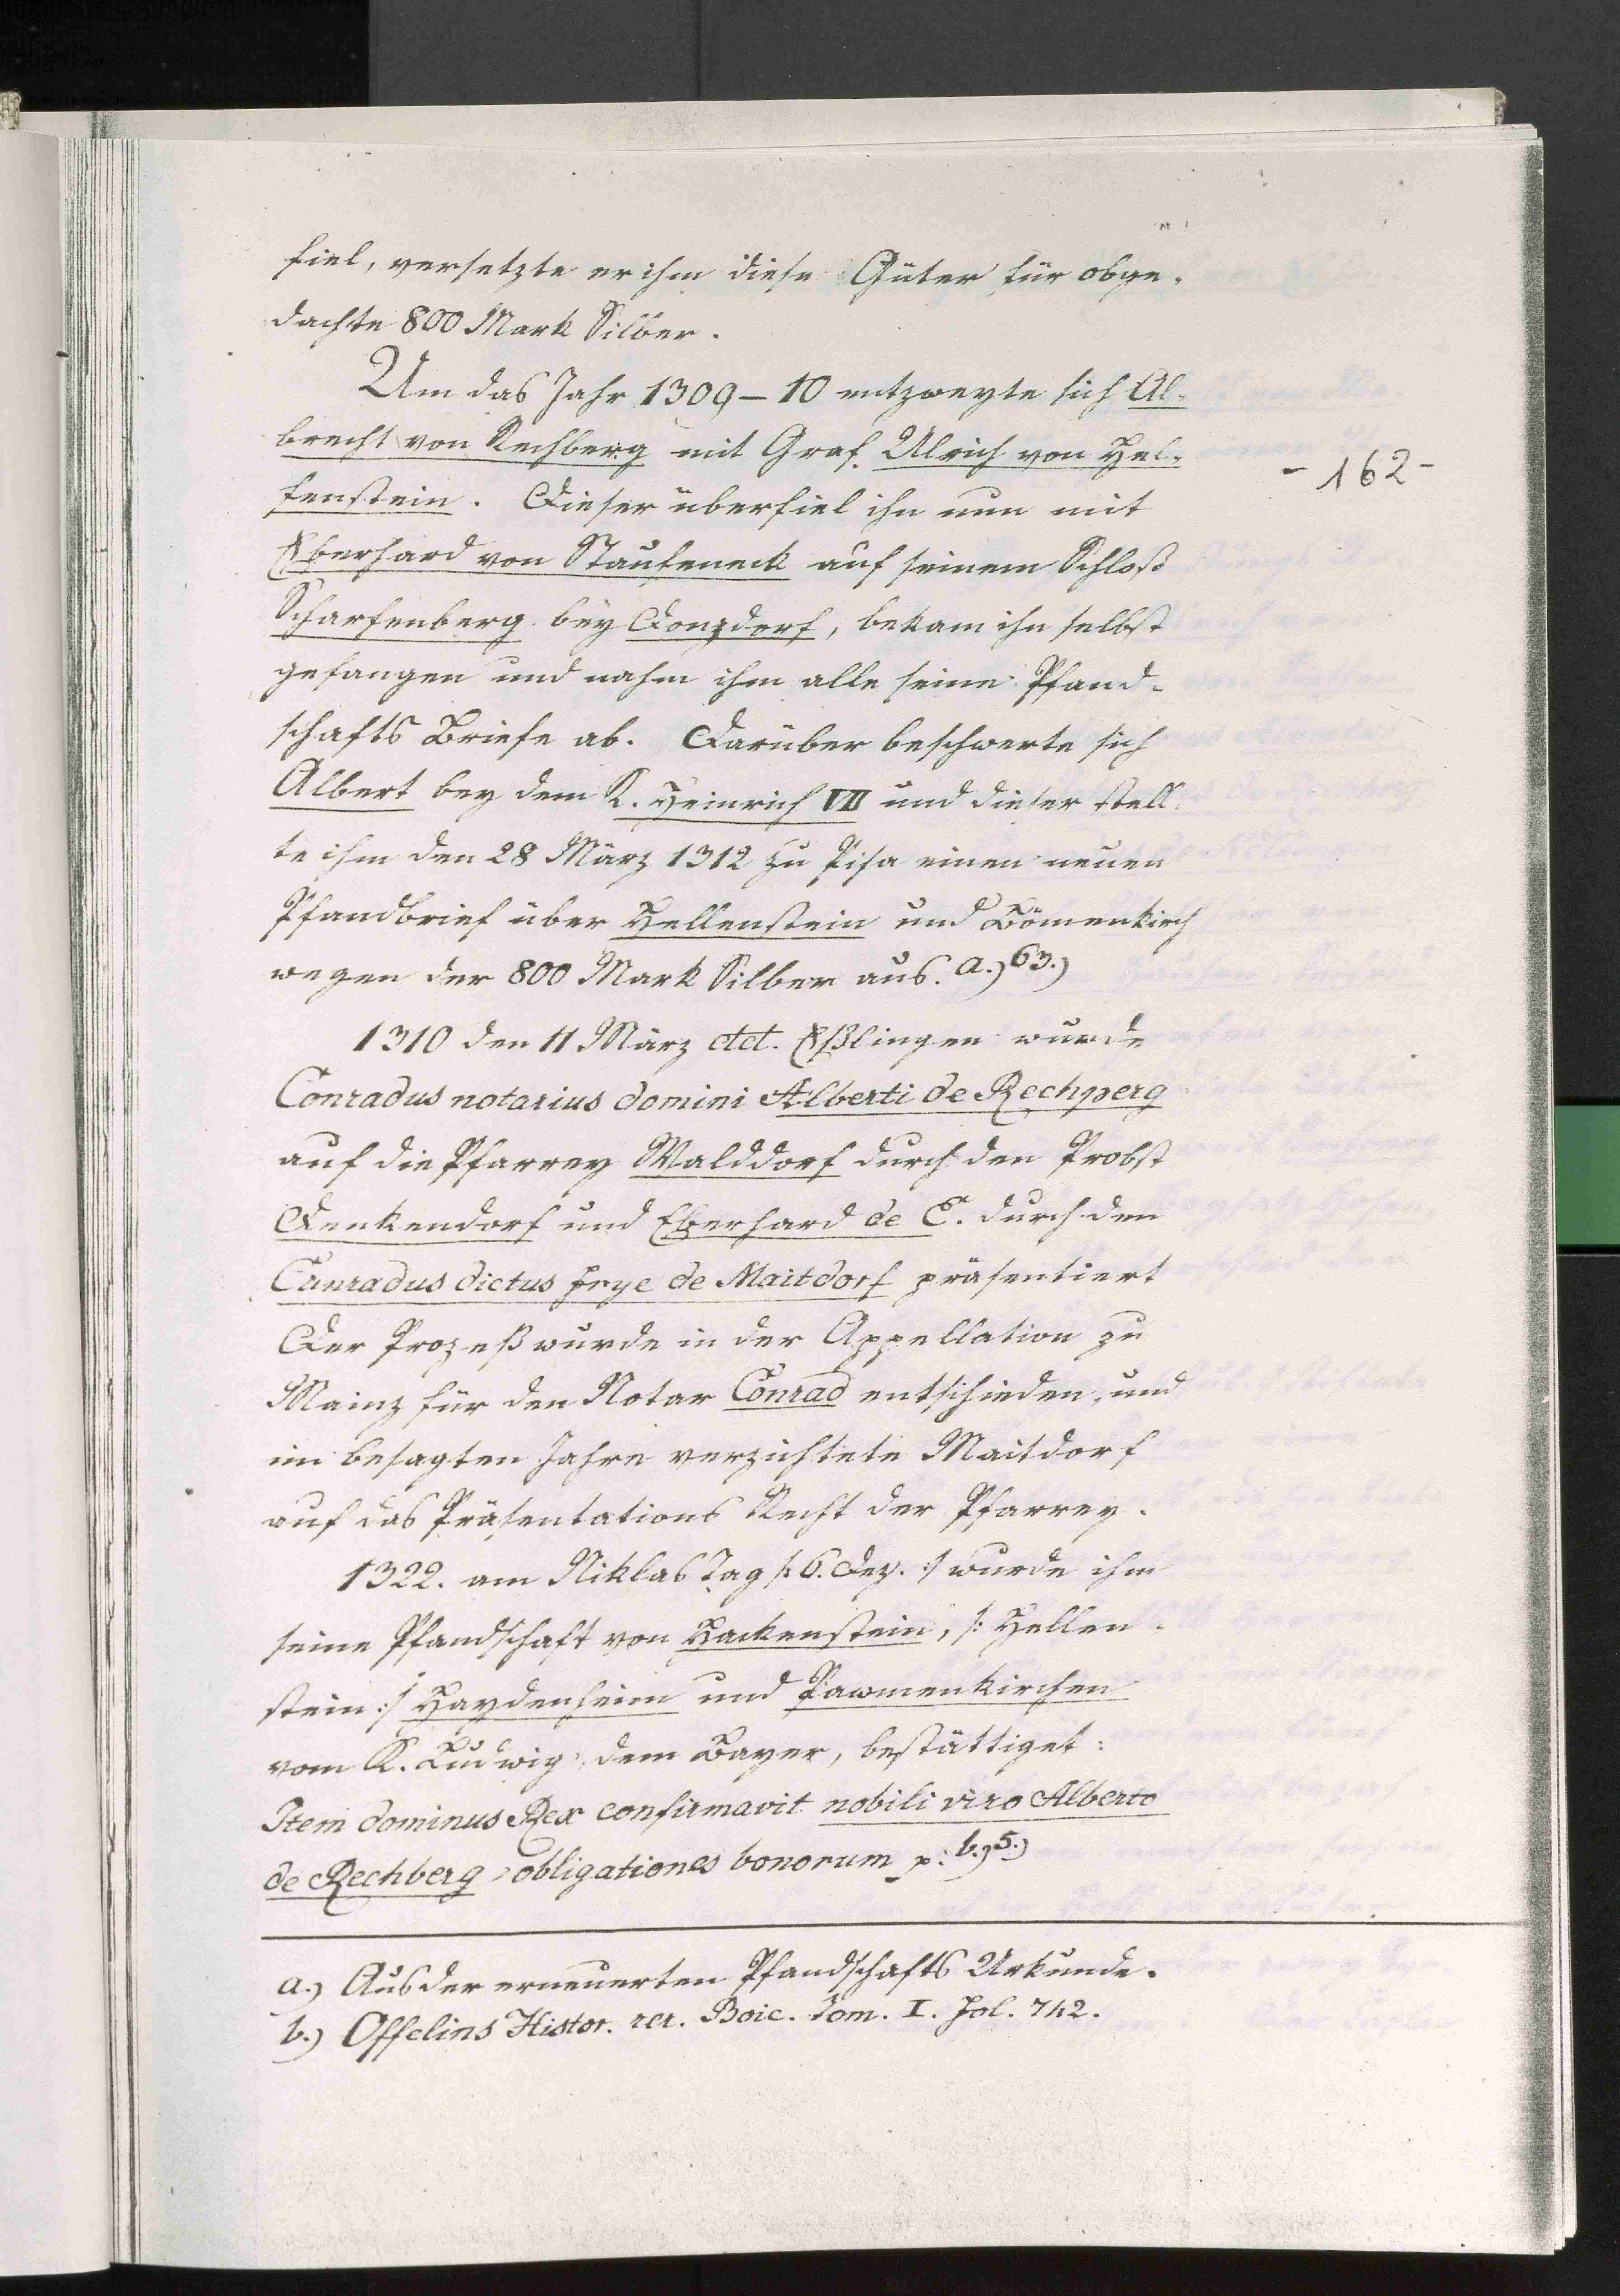 fiel, versetzte er ihm diese Güter für obge-
dachte 800 Mark Silber.
Um das Jahr 1309-10 entzweyte sich Al-
brecht von Rechberg mit Graf Ulrich von Hel-
- 162 -
fenstein. Dieser überfiel ihn nun mit
Eberhard von Staufeneck auf seinem Schloß
Scharfenberg bey Donzdorf, bekam ihn selbst
gefangen und nahm ihm alle seine Pfand-
schafts Briefe ab. Darüber beschwerte sich
Albert bey dem K. Heinrich VII und dieser stell-
te ihm den 28 März 1312 zu Pisa einen neuen
Pfandbrief über Hellenstein und Bömenkirch
wegen der 800 Mark Silber aus. a.) 63.)
1310 den 11 März dct. Eßlingen wurde
Conradus notarius domini Alberti de Rechperg
auf die Pfarrey Walddorf durch den Probst
Denkendorf und Eberhard de E. durch den
Cunradus dictus Frye de Maitdorf präsentiert
Der Prozeß wurde in der Appellation zu
Mainz für den Notar Conrad entschieden, und
im besagten Jahre verzichtete Maitdorf
auf das Präsentations Recht der Pfarrey.
1322. am Niklas Tag /: 6. Dez. :/ wurde ihm
seine Pfandschaft von Hackenstein, /: Hellen-
stein :/ Haydenheim und Pawmenkirchen
vom K. Ludwig, dem Bayer, bestättiget:
Item dominus Rex confirmavit nobili viro Alberto
de Rechberg obligationes bonorum p: b.) 5.)
a.) Aus der erneuerten Pfandschafts Urkunde.
b.) Offelins Histor. rer. Boic. Tom. I. Fol. 742.